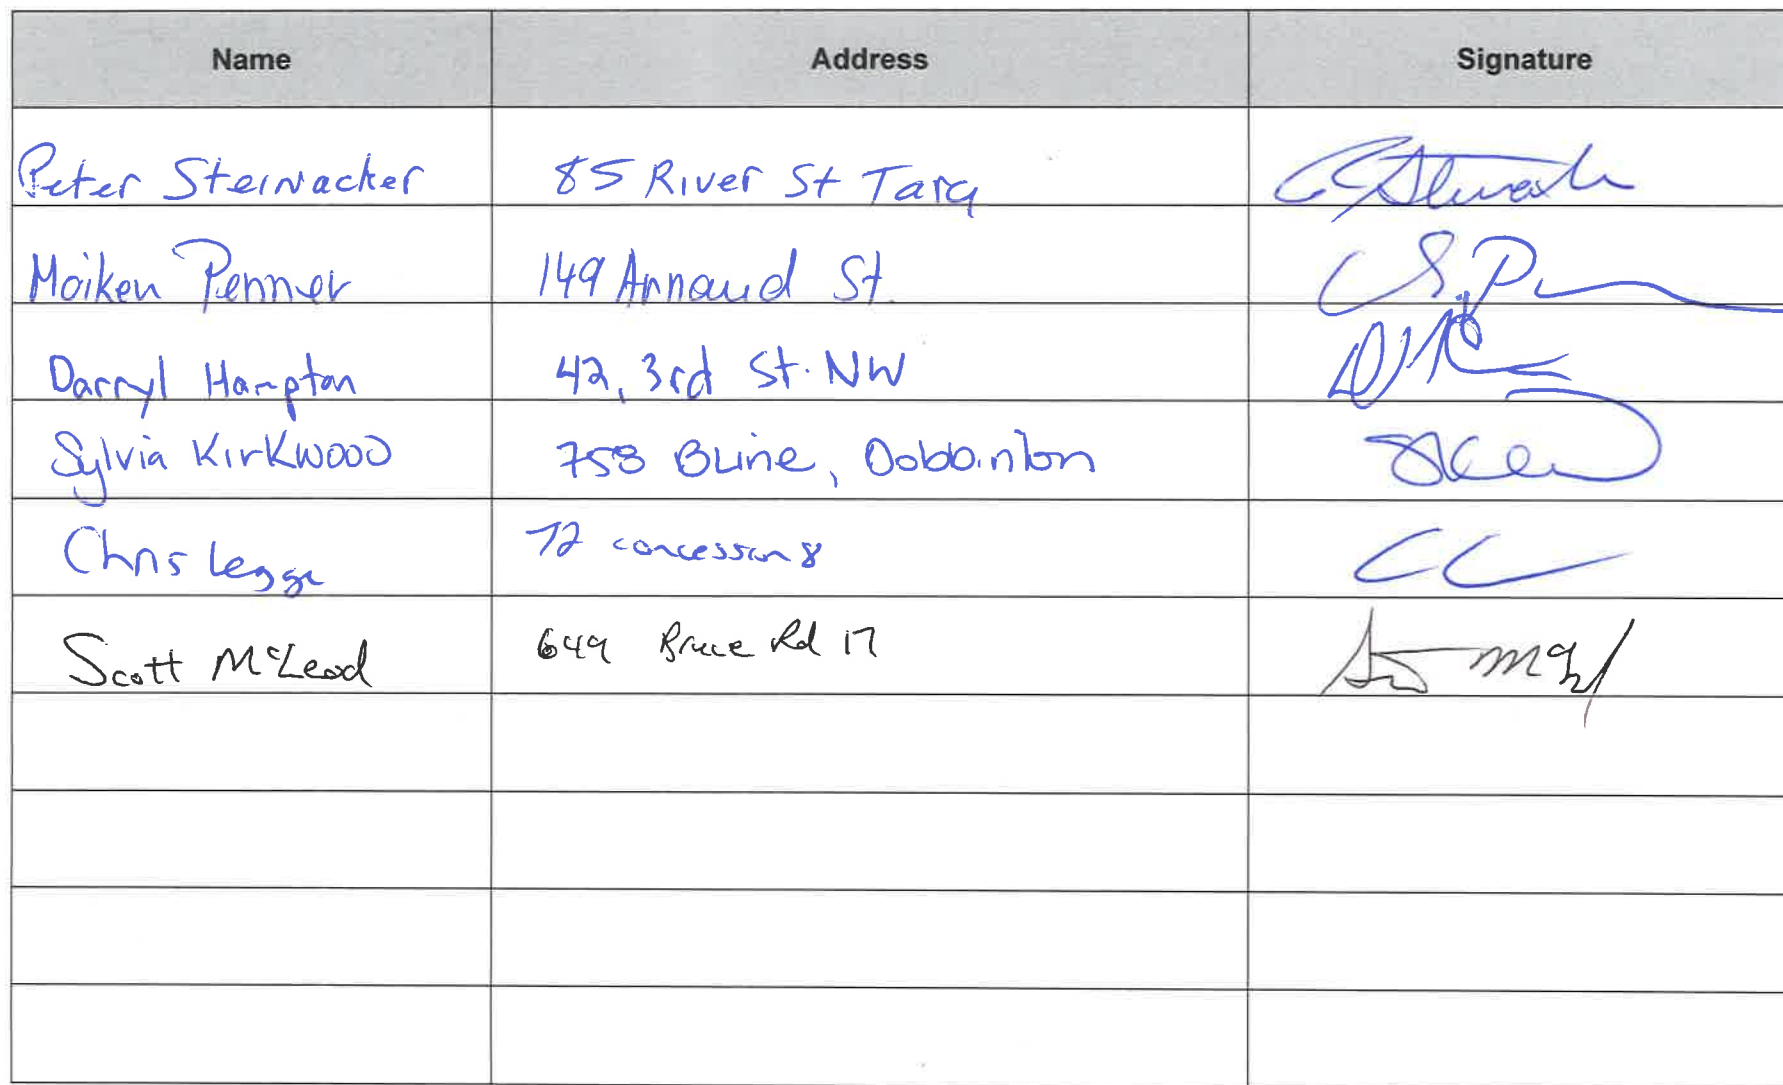 Name Address Signature
Peter Steinacker 85 River St Tara
Moiken Penner 149 Arnaud St.
Darryl Hampton 42, 3rd St. NW
Sylvia Kirkwood 758 B Line, Dobbinton
Chris Legge 72 concession 8
Scott McLeod 649 Bruce Rd 17